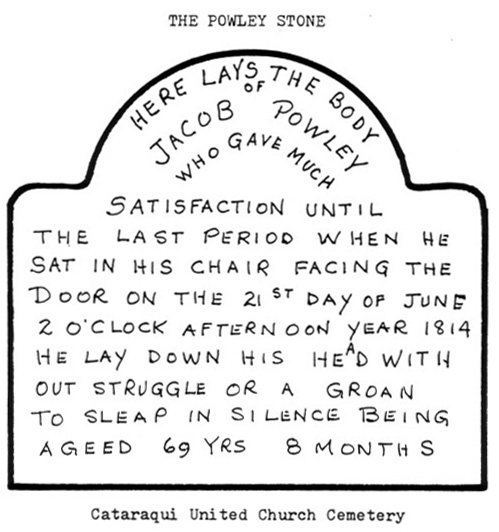 THE POWLEY STONE
HERE LAYS THE BODY
OF
JACOB POWLEY
WHO GAVE MUCH
SATISFACTION UNTIL
THE LAST PERIOD WHEN HE
SAT IN HIS CHAIR FACING THE
DOOR ON THE 21ST DAY OF JUNE
2 O'CLOCK AFTERNOON YEAR 1814
HE LAY DOWN HIS HEAD WITH
OUT STRUGGLE OR A GROAN
TO SLEAP IN SILENCE BEING
AGEED 69 YRS 8 MONTHS
Cataraqui United Church Cemetery